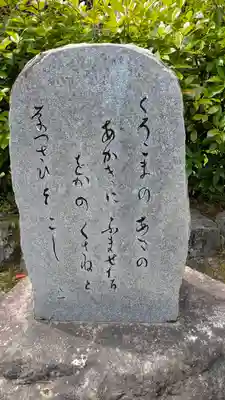 くろこまの あさの
あかきに ふませたる
をかの くさねと
なつさひそ こし